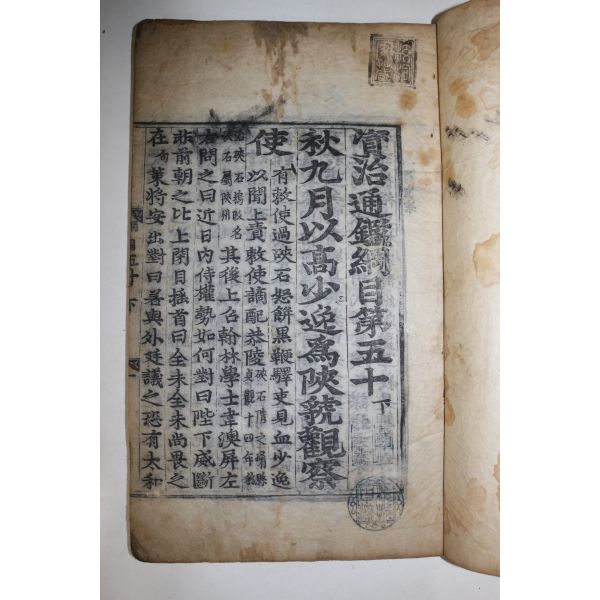 資治通鑑綱目第五十 下
秋九月以高少逸爲陝虢觀察
使
有敕使過硤石怒餅黑鞭驛吏見血少逸
以聞上責敕使謫配恭陵
其後上召翰林學士韋澳屏左
右問之曰近日內侍權勢如何對曰陛下威斷
非前朝之比上閉目搖首曰全未全未尚畏之
在 策將安出對曰若與外廷議之恐有太和